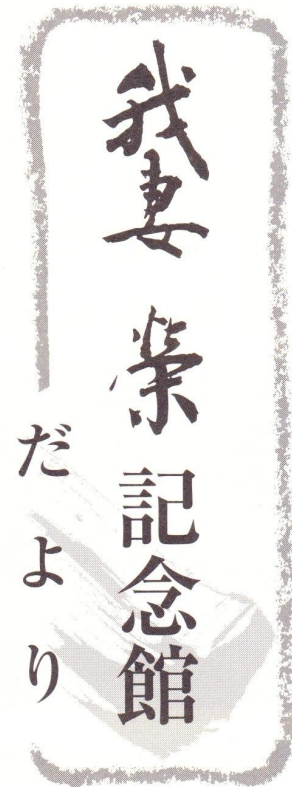 我妻榮記念館
だより